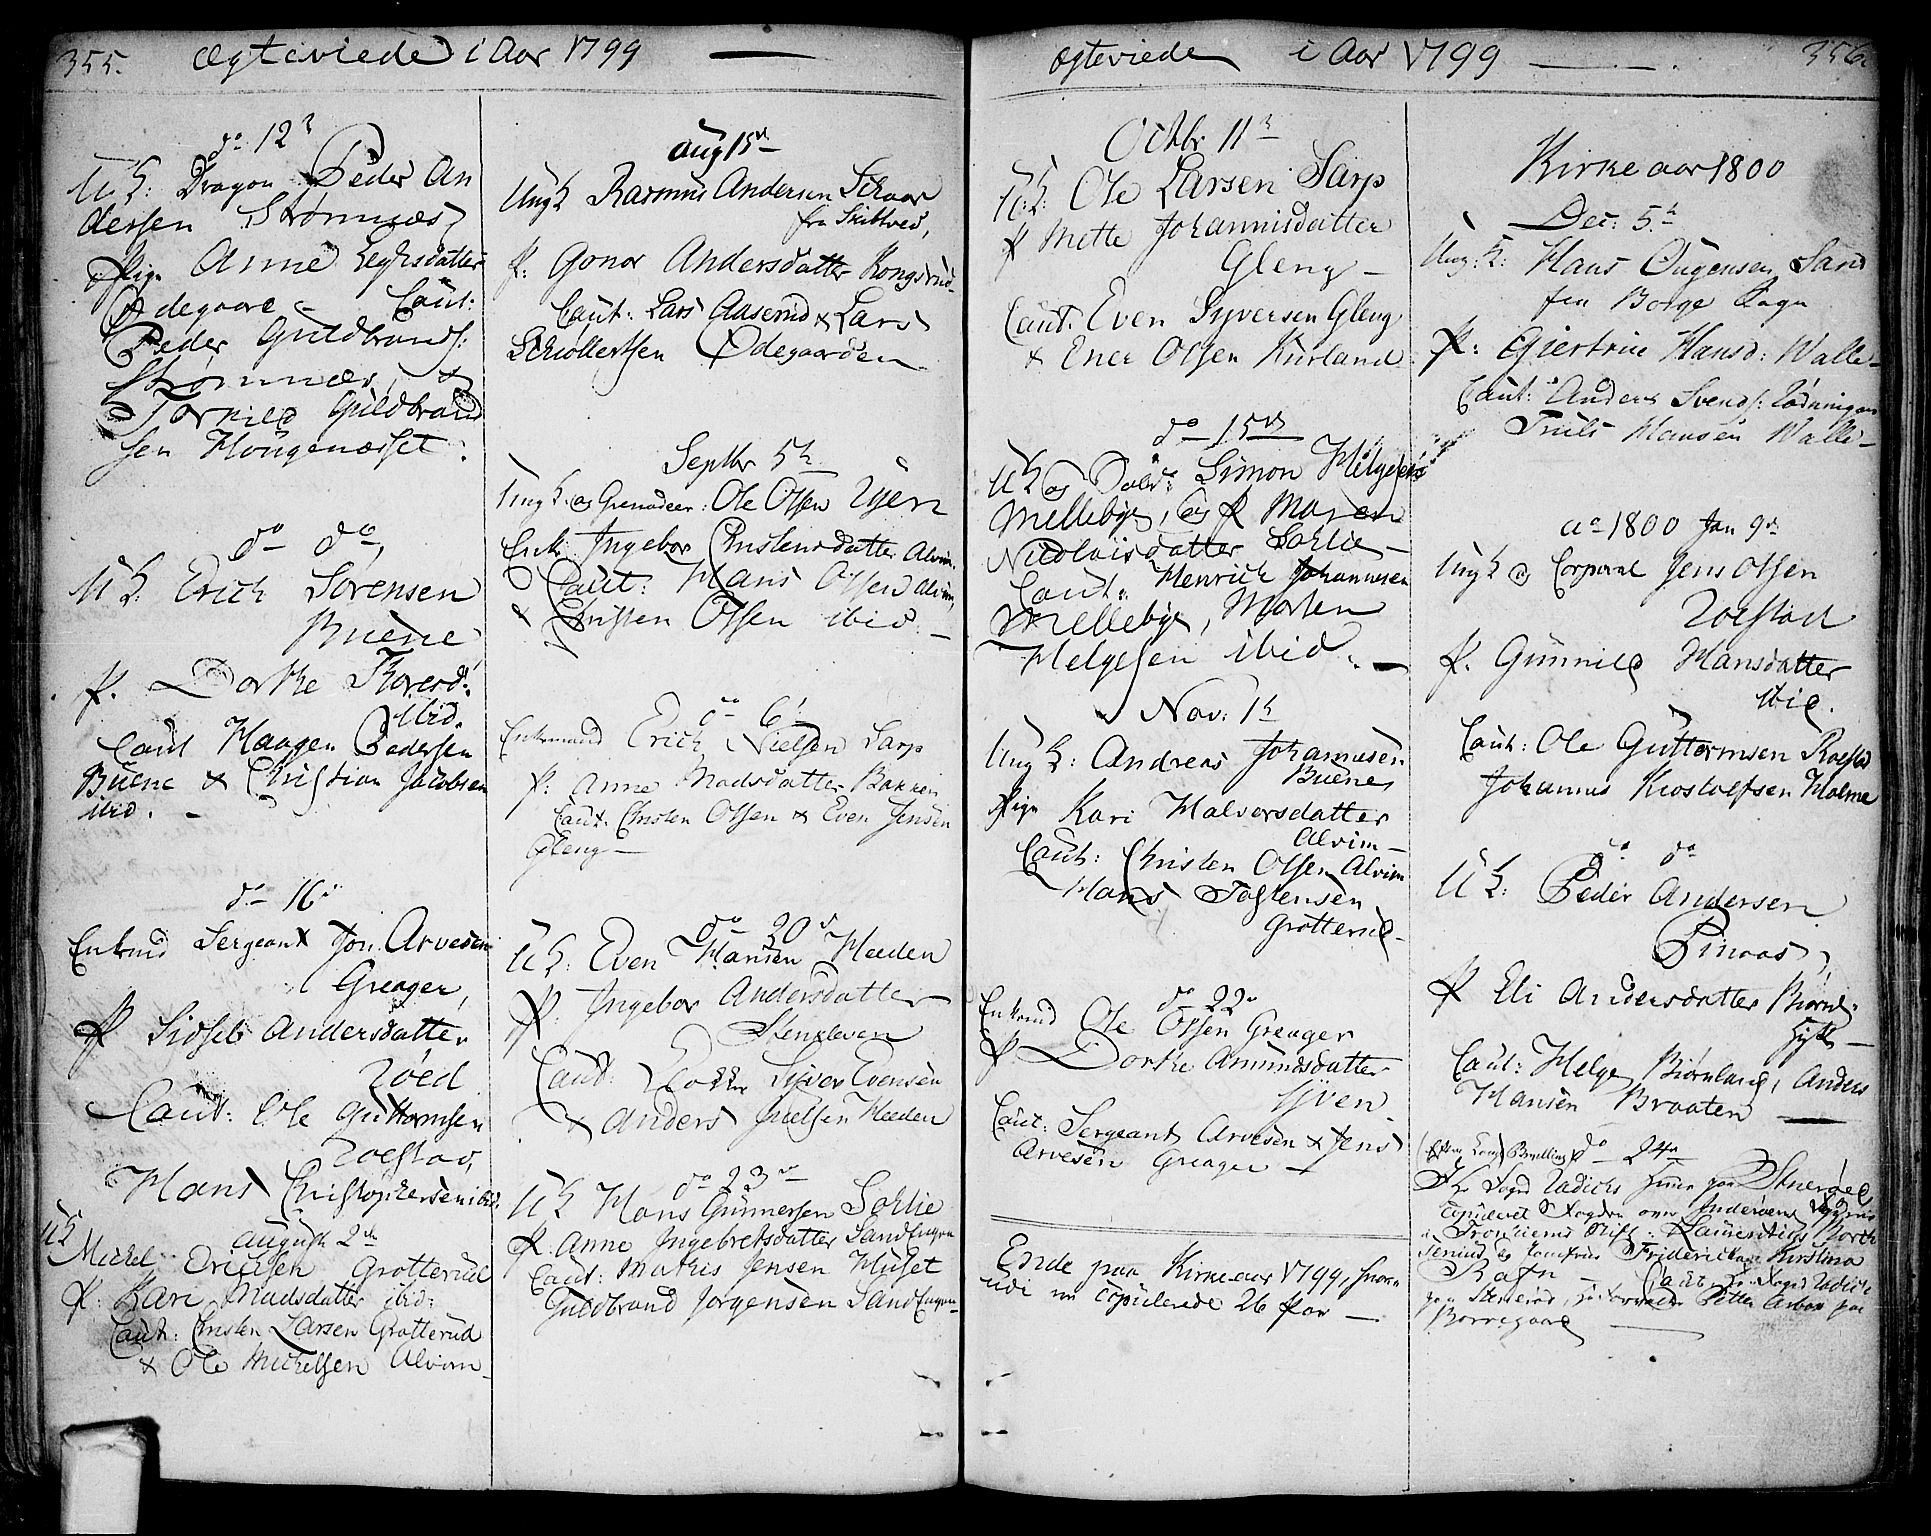 355. Ægteviede i Aar 1799
do 12
U K: Dragon Peder An
dersen Strømnæs,
Pige Anne
Ødegaare - Caut:
Peder Guldbrands:
Strømnæs, &
Torkild Guldbrand
sen Hougenæsset.
do do,
U K: Erich Sörensen
Buene
P. Dorthe Thoresd:
ibid.
Caut Haagen Pedersen
Buene & Christian Jacobsen
ibid. -
do 16
Enkmd Sergeant Jon Arvesen
Greager,
P Sidsele Andersdatter
Röed
Caut: Ole Guttormsen
Roestad,
Hans Christophersen ibid.
August 2
U K
Michel Ericksen Grotterud
P: Kari Madsdatter ibid:
Caut: Christen Larsen Grotterud
& Ole Michelsen Alvim
Aug 15
Ung K Rasmus Andersen Schaar
fra Skibtved,
P: Gonor Andersdatter Kongsrud
Caut: Lars Aaserud & Lars
Ødegaarden
Septbr 5
Ung K. og Grenadeer: Ole Olsen
Enk: Ingebor Christensdatter Alvim.
Caut: Hans Olsen Alvim,
& Christen Olsen ibid. -
do 6
Enkemand Erich Nielsen Sarp
P: Anne Madsdatter Bakken
Caut. Christen Olsen & Even Jensen
Gleng -
do 20
U K: Even Hansen Heeden
P: Ingebor Andersdatter
Stenkleven
Caut: Klokker Syver Evensen
& Anders Juelsen Heeden
do 23
U K Hans Gunnersen Sohlie
P. Anne Ingebretsdatter Sandengen
Caut: Mathis Jensen Huset
Guldbrand Jorgensen Sandengen
Ægteviede i Aar 1799 356.
Octbr 11
U: K: Ole Larsen Sarp
P Mette Johannisdatter
Gleng -
Caut. Even Syversen Gleng
& Ener Olsen Kurland
do 15
U K og Sold: Simon Helgesen
Mellebye, og P Maren
Nicolaisdatter Sohlie -
Caut: Henrich Johannesen
Mellebye, Morten
Helgesen ibid. -
Nov: 1
Ung K: Andreas Johannesen
Buene,
Pige Kari Halvorsdatter
Alvim -
Caut: Christen Olsen Alvim
Hans Tostensen
Grotterud -
do 22
Enkmd Ole Olsen Greager
P Dorthe Amundsdatter
Caut: Sergeant Arvesen & Jens
Arvesen Greager -
Ende paa Kirkeaar 1799, hvor
udi er Copulerede 26 Par -
Kirke aar 1800
Dec: 5
Ung: K: Hans Sand
fra Borge Sogn
P: Giertrue Hansd: Walle -
Caut: Anders Svends:
Truls Hansen Walle -
ao 1800 Jan 9
Ung K og Corporal Jens Olsen
Roestad
P. Gunnild Hansdatter
ibid.
Caut: Ole Guttormsen Roestad
Johannes Holme
do do
U K: Peder Andersen
P Eli Andersdatter Biørnl:
Caut: Helge Biørnland, Anders
Hansen Braaten -
do 24
Copuleret Fogden over Inderøens
i Tronhiems Stift: Laurentius Borth
senius og Jomfrue Friderica Kirstina
Rafn -
Petter paa
Borregaard